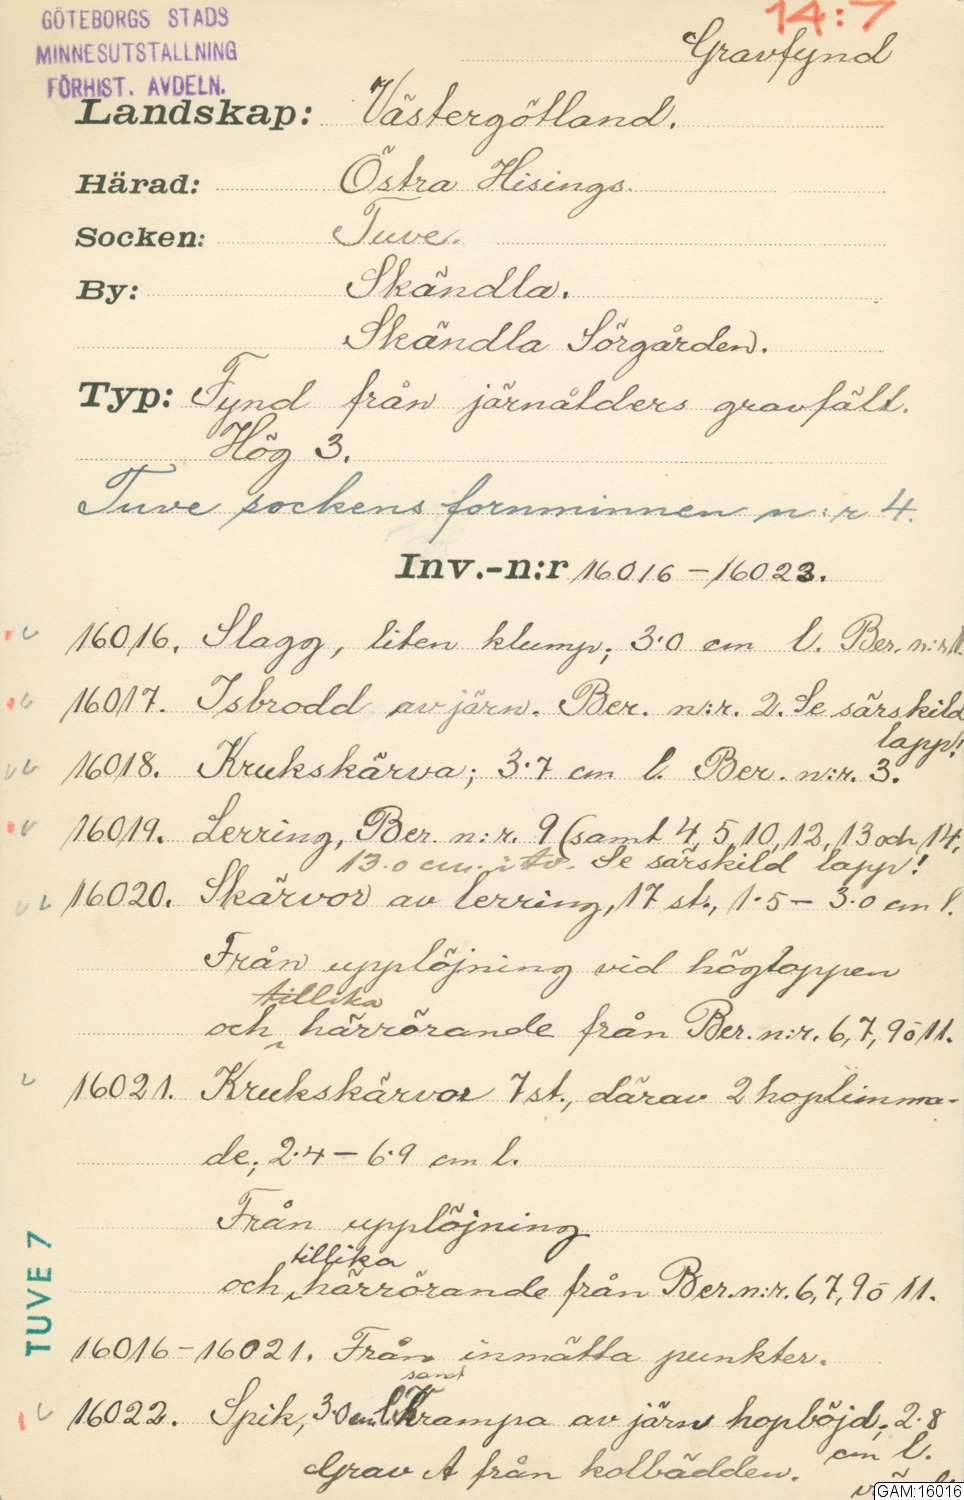 14:7
GÖTEBORGS STADS
MINNESUTSTÄLLNING
FÖRHIST. AVDELN.
Gravfynd
Landskap: Västergötland.
Härad: Östra Hisings.
Socken: Tuve.
By: Skändla.
Skändla Sörgården.
Typ: Fynd från järnålders gravfält.
Hög 3.
Tuve sockens fornminnen n:r 4.
Inv.-n:r 16016 – 16023.
16016. Slagg, liten klump; 3·0 cm l. Ber. n:r 1.
16017. Isbrodd av järn. Ber. n:r. 2. Se särskild
lapp!
16018. Krukskärva; 3·7 cm l. Ber. n:r. 3.
16019. Lerring, Ber. n:r. 9 (samt 4, 5, 10, 12, 13 och 14.
13.0 cm. i tv. Se särskild lapp!
16020. Skärvor av lerring, 17 st., 1·5 – 3·0 cm l.
Från upplöjning vid högtoppen
tillika
och härrörande från Ber. n:r. 6, 7, 9 o 11.
16021. Krukskärvor 7 st., därav 2 hoplimma-
de; 2·4 – 6·9 cm l.
Från upplöjning
tillika
och härrörande från Ber. n:r. 6, 7, 9 o 11.
16016 – 16021. Från inmätta punkter.
samt
16022. Spik, 3·0 cm l. Krampa av järn hopböjd; 2·8
cm l.
Grav A från kolbädden.
TUVE 7
GAM:16016